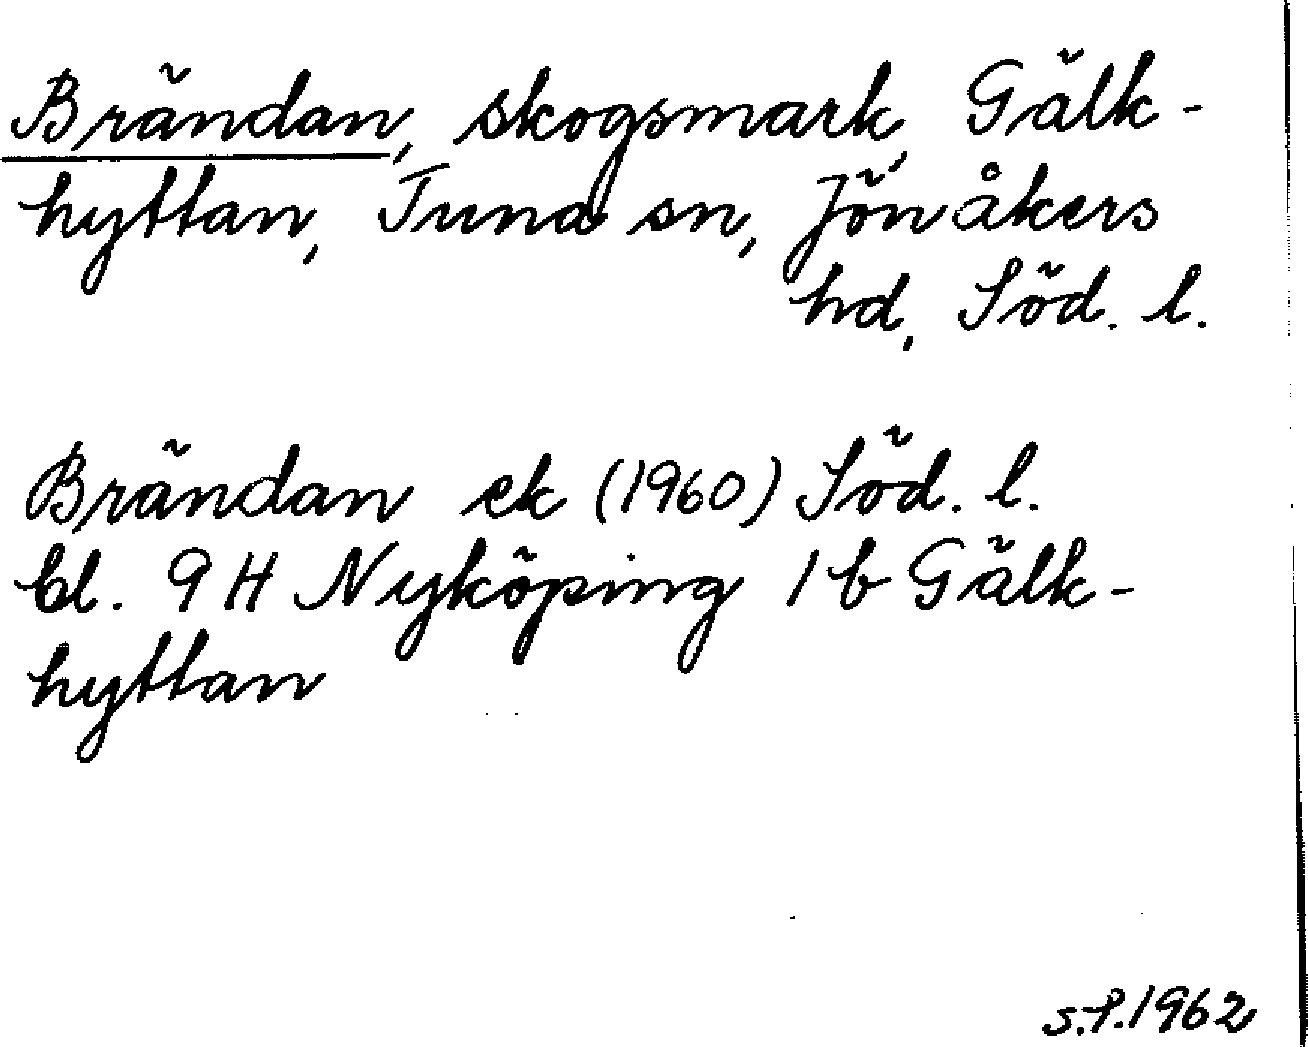 Brändan, skogsmark, Gälk-
hyttan, Tuna sn, Jönåkers
hd, Söd. l.
Brändan ek (1960) Söd. l.
bl. 9 H Nyköping 1 b Gälk-
hyttan
s.f. 1962